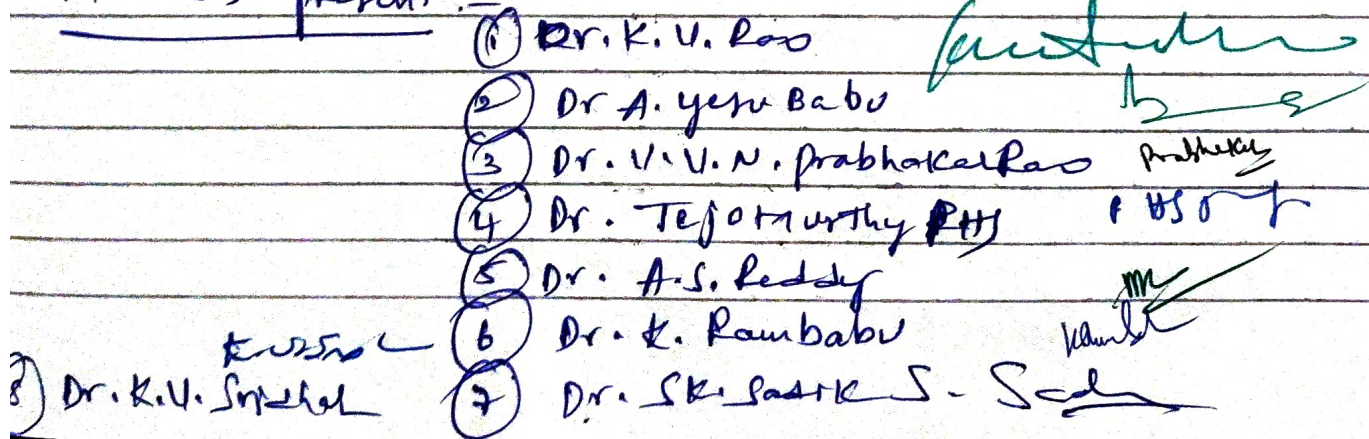 present :-
① Dr. K. V. Rao
② Dr A. Yesu Babu
③ Dr. V. V. N. Prabhakar Rao Prabhakar
④ Dr. Tejomurthy PHS
⑤ Dr. A.S. Reddy
⑥ Dr. K. Rambabu
⑦ Dr. SK. Sadik S.
8) Dr. K.V. Sridhar